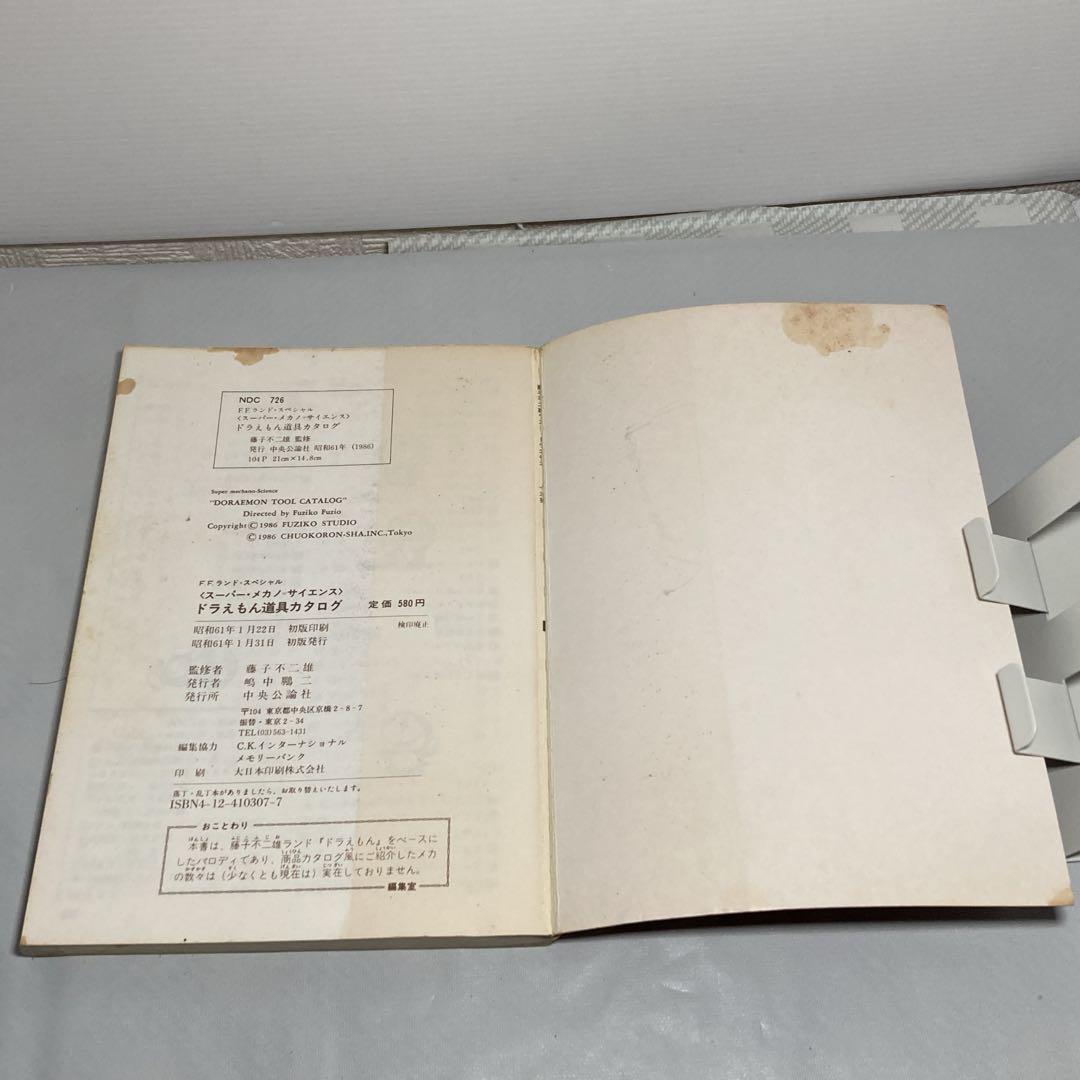 NDC 726
F.F.ランド・スペシャル
〈スーパー・メカノ=サイエンス〉
ドラえもん道具カタログ
藤子不二雄 監修
発行 中央公論社 昭和61年 (1986)
104P 21cm×14.8cm
Super mechano-Science
"DORAEMON TOOL CATALOG"
Directed by Fuziko Fuzio
Copyright©1986 FUZIKO STUDIO
©1986 CHUOKORON-SHA,INC.,Tokyo
F.F.ランド・スペシャル
〈スーパー・メカノ=サイエンス〉
ドラえもん道具カタログ 定価 580円
昭和61年1月22日 初版印刷 検印廃止
昭和61年1月31日 初版発行
監修者 藤子不二雄
発行者 嶋中鵬二
発行所 中央公論社
〒104 東京都中央区京橋2-8-7
振替・東京2-34
TEL(03)563-1431
編集協力 C.K.インターナショナル
メモリーバンク
印刷 大日本印刷株式会社
落丁・乱丁本がありましたら、お取り替えいたします。
ISBN4-12-410307-7
おことわり
本書は、藤子不二雄ランド『ドラえもん』をベースに
したパロディであり、商品カタログ風にご紹介したメカ
の数々は(少なくとも現在は)実在しておりません。
編集室